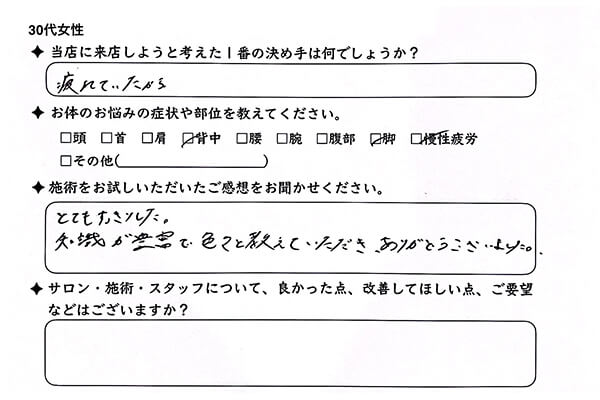 30代女性
✦ 当店に来店しようと考えた1番の決め手は何でしょうか?
疲れていたから
✦ お体のお悩みの症状や部位を教えてください。
□頭 □首 □肩 ☑背中 □腰 □腕 □腹部 ☑脚 ☑慢性疲労
□その他( )
✦ 施術をお試しいただいたご感想をお聞かせください。
とてもすっきりした。
知識が豊富で色々と教えていただきありがとうございました。
✦ サロン・施術・スタッフについて、良かった点、改善してほしい点、ご要望
などはございますか?